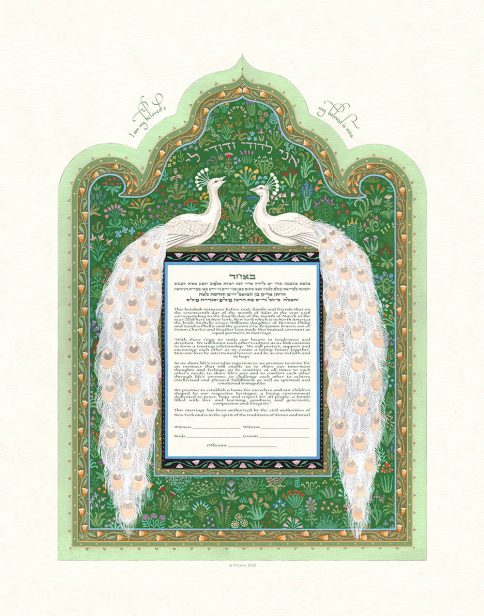 I am my beloved's
my beloved is mine
אני לדודי ודודי לי
באחד
This ketubah witnesses before God, family and friends that on
the seventeenth day of the month of Adar in the year
corresponding to the fourth day of the month of March in the
year in New York, New York which is in North America
the bride Michelle Grace Williams daughter of Herman Philip
and Sandra Phyllis and the groom Eric Benjamin Francis son of
Dennis Charles and Heather Lisa made this mutual covenant as
equal partners in marriage.
"With these rings we unite our hearts in tenderness and
devotion. We will honor each other's cultures as we link customs
to form a trusting relationship. We will protect, support and
encourage each other as we create a loving future together.
May our lives be intertwined forever and be as one in faith and
in hope.
As we share life's everyday experiences, we promise to strive for
an intimacy that will enable us to share our innermost
thoughts and feelings; to be sensitive at all times to each
other's needs; to share life's joys and to comfort each other
through life's sorrows; to challenge each other to achieve
intellectual and physical fulfillment as well as spiritual and
emotional tranquility.
We promise to establish a home for ourselves and our children
shaped by our respective heritages; a loving environment
dedicated to peace, hope and respect for all people; a family
filled with love and learning, goodness and generosity,
compassion and integrity."
This marriage has been authorized by the civil authorities of
New York and is in the spirit of the traditions of Moses and Israel.
Witness Witness
Bride Groom
Officiant